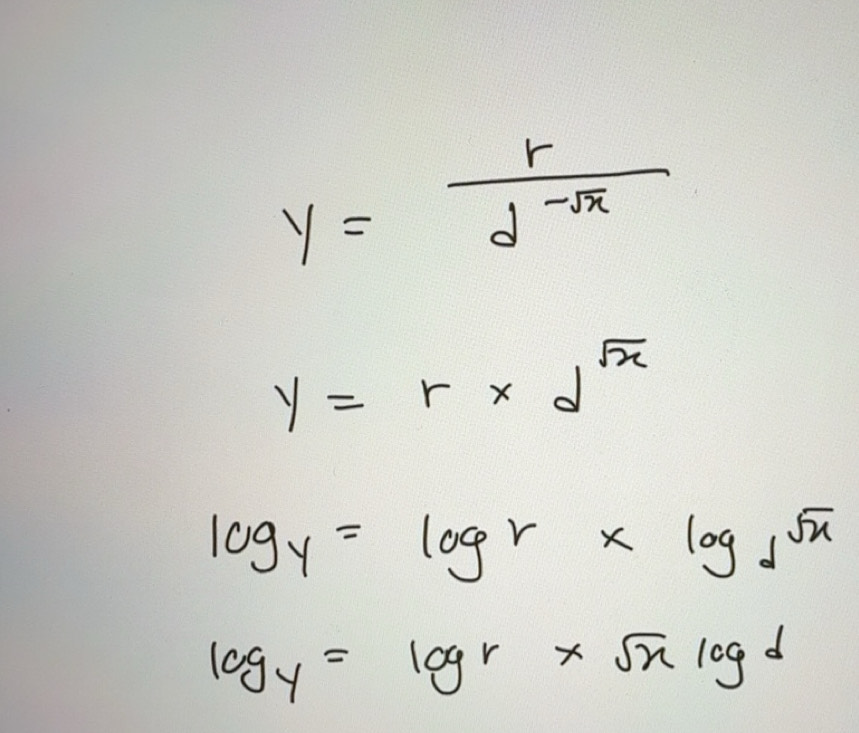 y = r / d^(-√x)
y = r × d^(√x)
log y = log r × log d^(√x)
log y = log r × √x log d